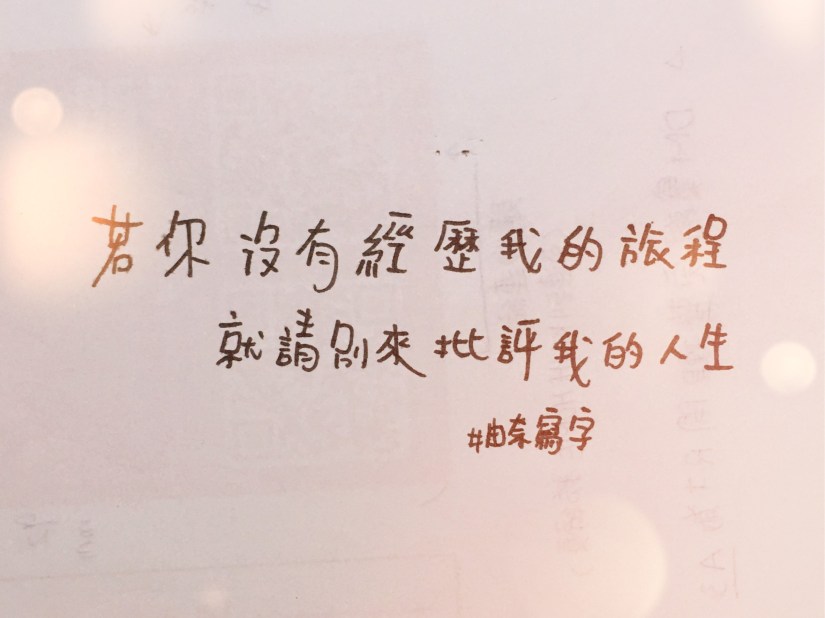 若你沒有經歷我的旅程
就請別來批評我的人生
#由奈寫字